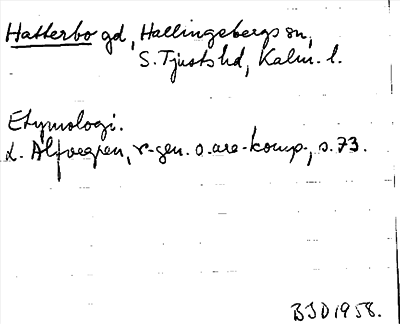 Hatterbo gd, Hallingebergs sn,
S. Tjusts hd, Kalm. l.
Etymologi.
L. Alfvegren, r-gen. o. are-komp., s. 73.
BJD 1958.